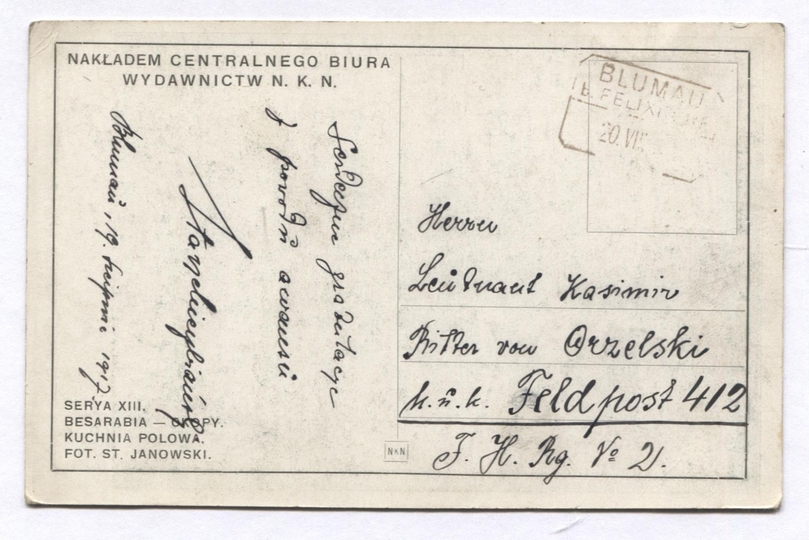 NAKŁADEM CENTRALNEGO BIURA
WYDAWNICTW N. K. N.
Serdeczne gratulacje
z powodu awansu
Blumau, 19. sierpnia 1917.
SERYA XIII.
BESARABIA — OKOPY.
KUCHNIA POLOWA.
FOT. ST. JANOWSKI.
NKN
BLUMAU
20 VII
Herrn
Leutnant Kasimir
Ritter von Orzelski
k.u.k. Feldpost 412
F. H. Rg. No 2.